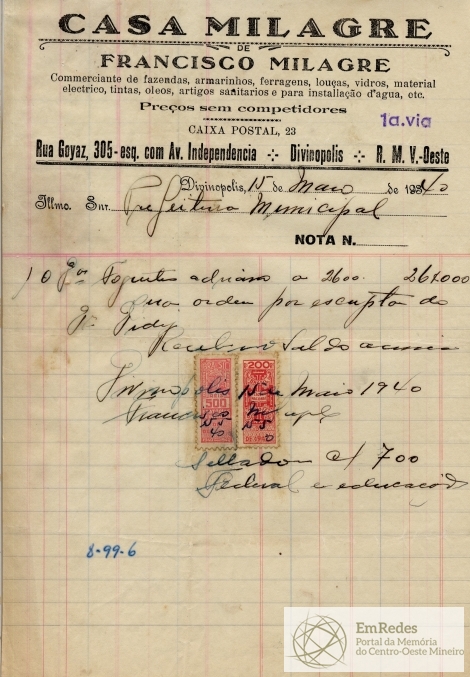 CASA MILAGRE
DE
FRANCISCO MILAGRE
Commerciante de fazendas, armarinhos, ferragens, louças, vidros, material
electrico, tintas, oleos, artigos sanitarios e para installação d'agua, etc.
Preços sem competidores
CAIXA POSTAL, 23
1a.via
Rua Goyaz, 305-esq. com Av. Independencia Divinopolis R. M. V.-Oeste
Divinopolis, 15 de Maio de 1940
Illmo. Snr. Prefeitura Municipal
NOTA N.
10 a 2600. 26.000
sua ordem por escripto do
Recebi o saldo acima
Divinopolis 15 de Maio 1940
BRASIL
500
200
Francisco Milagre
15 5 40
Sellado c/ 700
Federal e educação
8-99-6
EmRedes
Portal da Memória
do Centro-Oeste Mineiro